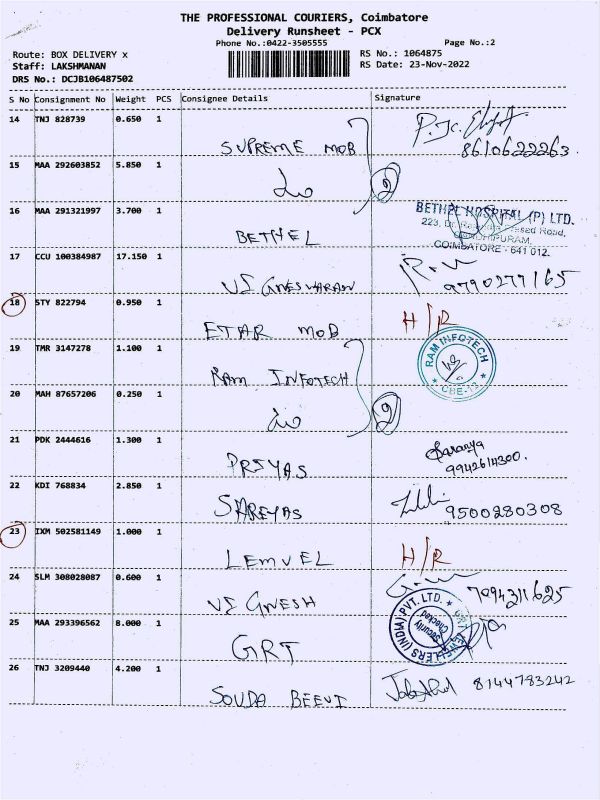 THE PROFESSIONAL COURIERS, Coimbatore
Delivery Runsheet - PCX
Phone No.:0422-3505555 Page No.:2
Route: BOX DELIVERY x RS No.: 1064875
Staff: LAKSHMANAN RS Date: 23-Nov-2022
DRS No.: DCJB106487502
S No Consignment No Weight PCS Consignee Details Signature
14 TNJ 828739 0.650 1
SUPREME MOB 8610622263
15 MAA 292603852 5.850 1
2
16 MAA 291321997 3.700 1
BETHEL
BETHEL HOSPITAL (P) LTD.
223, Road,
COIMBATORE - 641 012.
17 CCU 100384987 17.150 1
VIGNESWARAN 9790277165
18 STY 822794 0.950 1
ETAR MOB H/R
19 TMR 3147278 1.100 1
RAM INFOTECH
RAM INFOTECH
CBE-12
20 MAH 87657206 0.250 1
2
21 PDK 2444616 1.300 1
PRIYAS Saranya
9942614300.
22 KDI 768834 2.850 1
SAREYAS 9500280308
23 IXM 502581149 1.000 1
LEMUEL H/R
24 SLM 308028087 0.600 1
VIGNESH 7094311625
25 MAA 293396562 8.000 1
GRT
GRT JEWELLERS (INDIA) PVT. LTD.
Security
Checked
26 TNJ 3209440 4.200 1
SOUDA BEEVI 8144783242